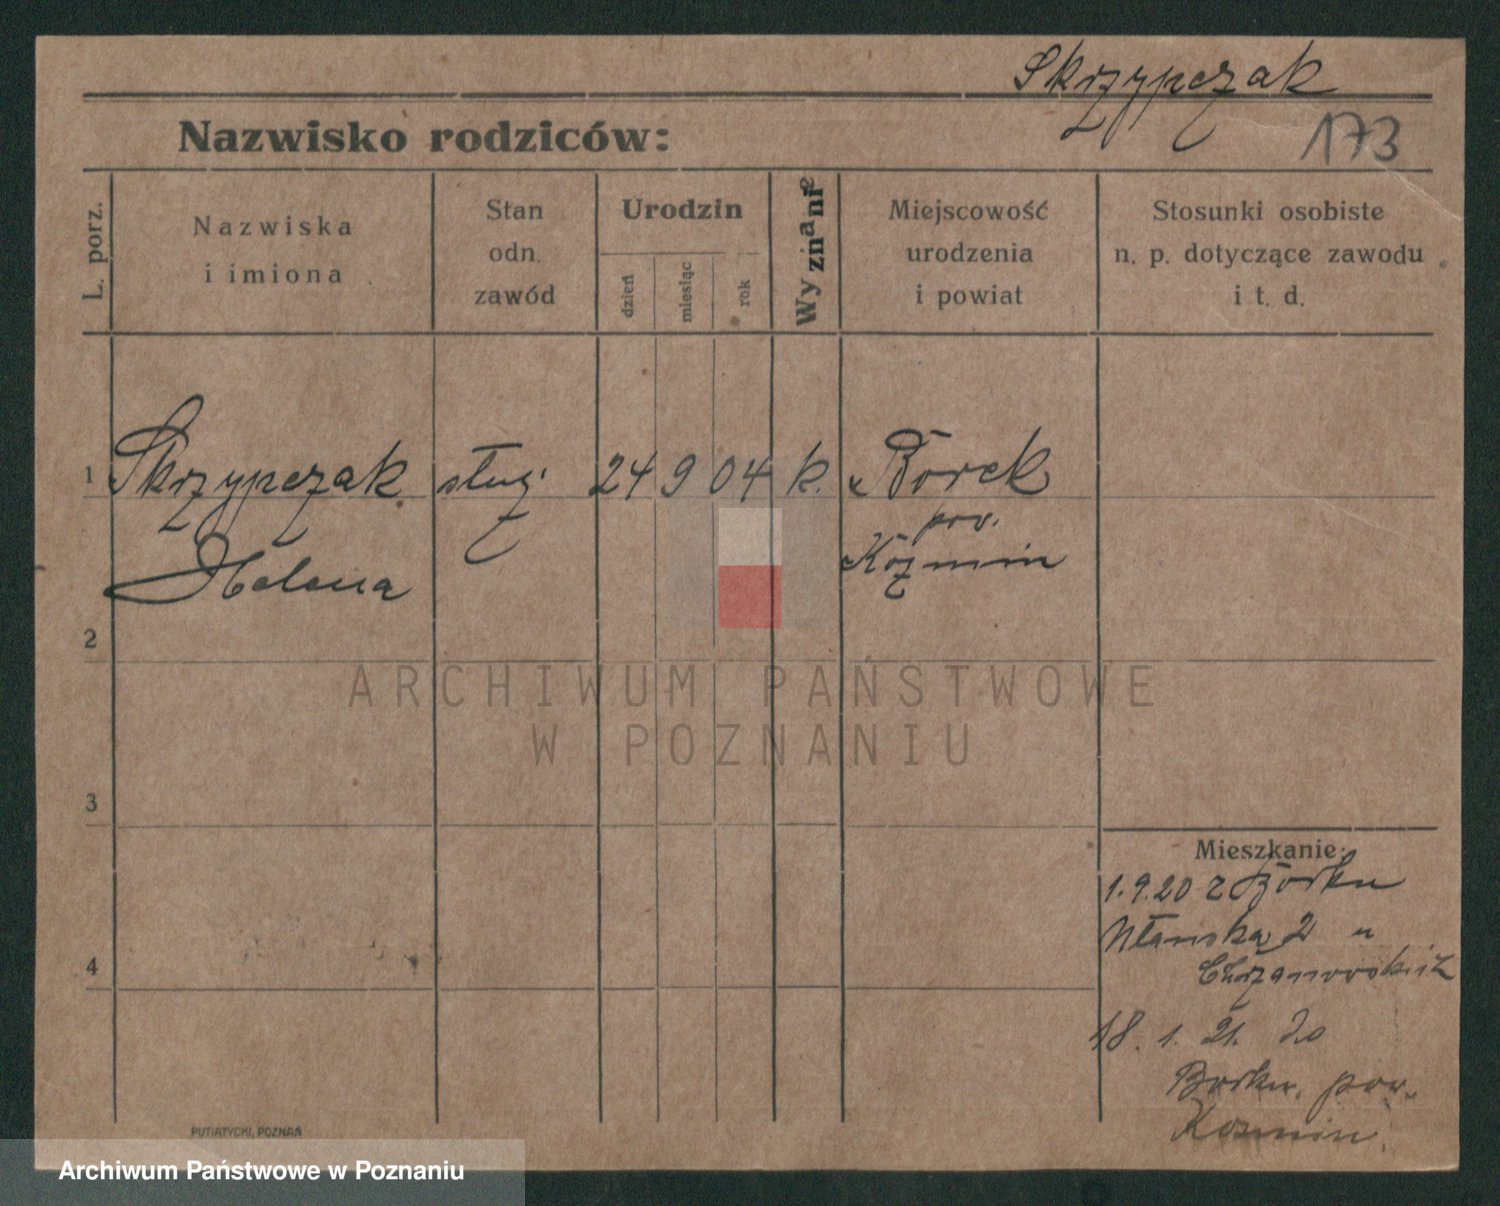 Skrzypczak
173
Nazwisko rodziców:
L. porz.
Nazwiska
i imiona
Stan
odn.
zawód
Urodzin
dzień
miesiąc
rok
Wyznanie
Miejscowość
urodzenia
i powiat
Stosunki osobiste
n. p. dotyczące zawodu
i t. d.
1 Skrzypczak sług. 24 9 04 k. Borek
pow.
Koźmin
Helena
2
ARCHIWUM PAŃSTWOWE
W POZNANIU
3
Mieszkanie:
1.9.20 z Borku
Ułańska 2 u
Chrzanowskich
4
18. 1. 21. do
Borku, pow.
Kozmin
PUTIATYCKI, POZNAŃ
Archiwum Państwowe w Poznaniu